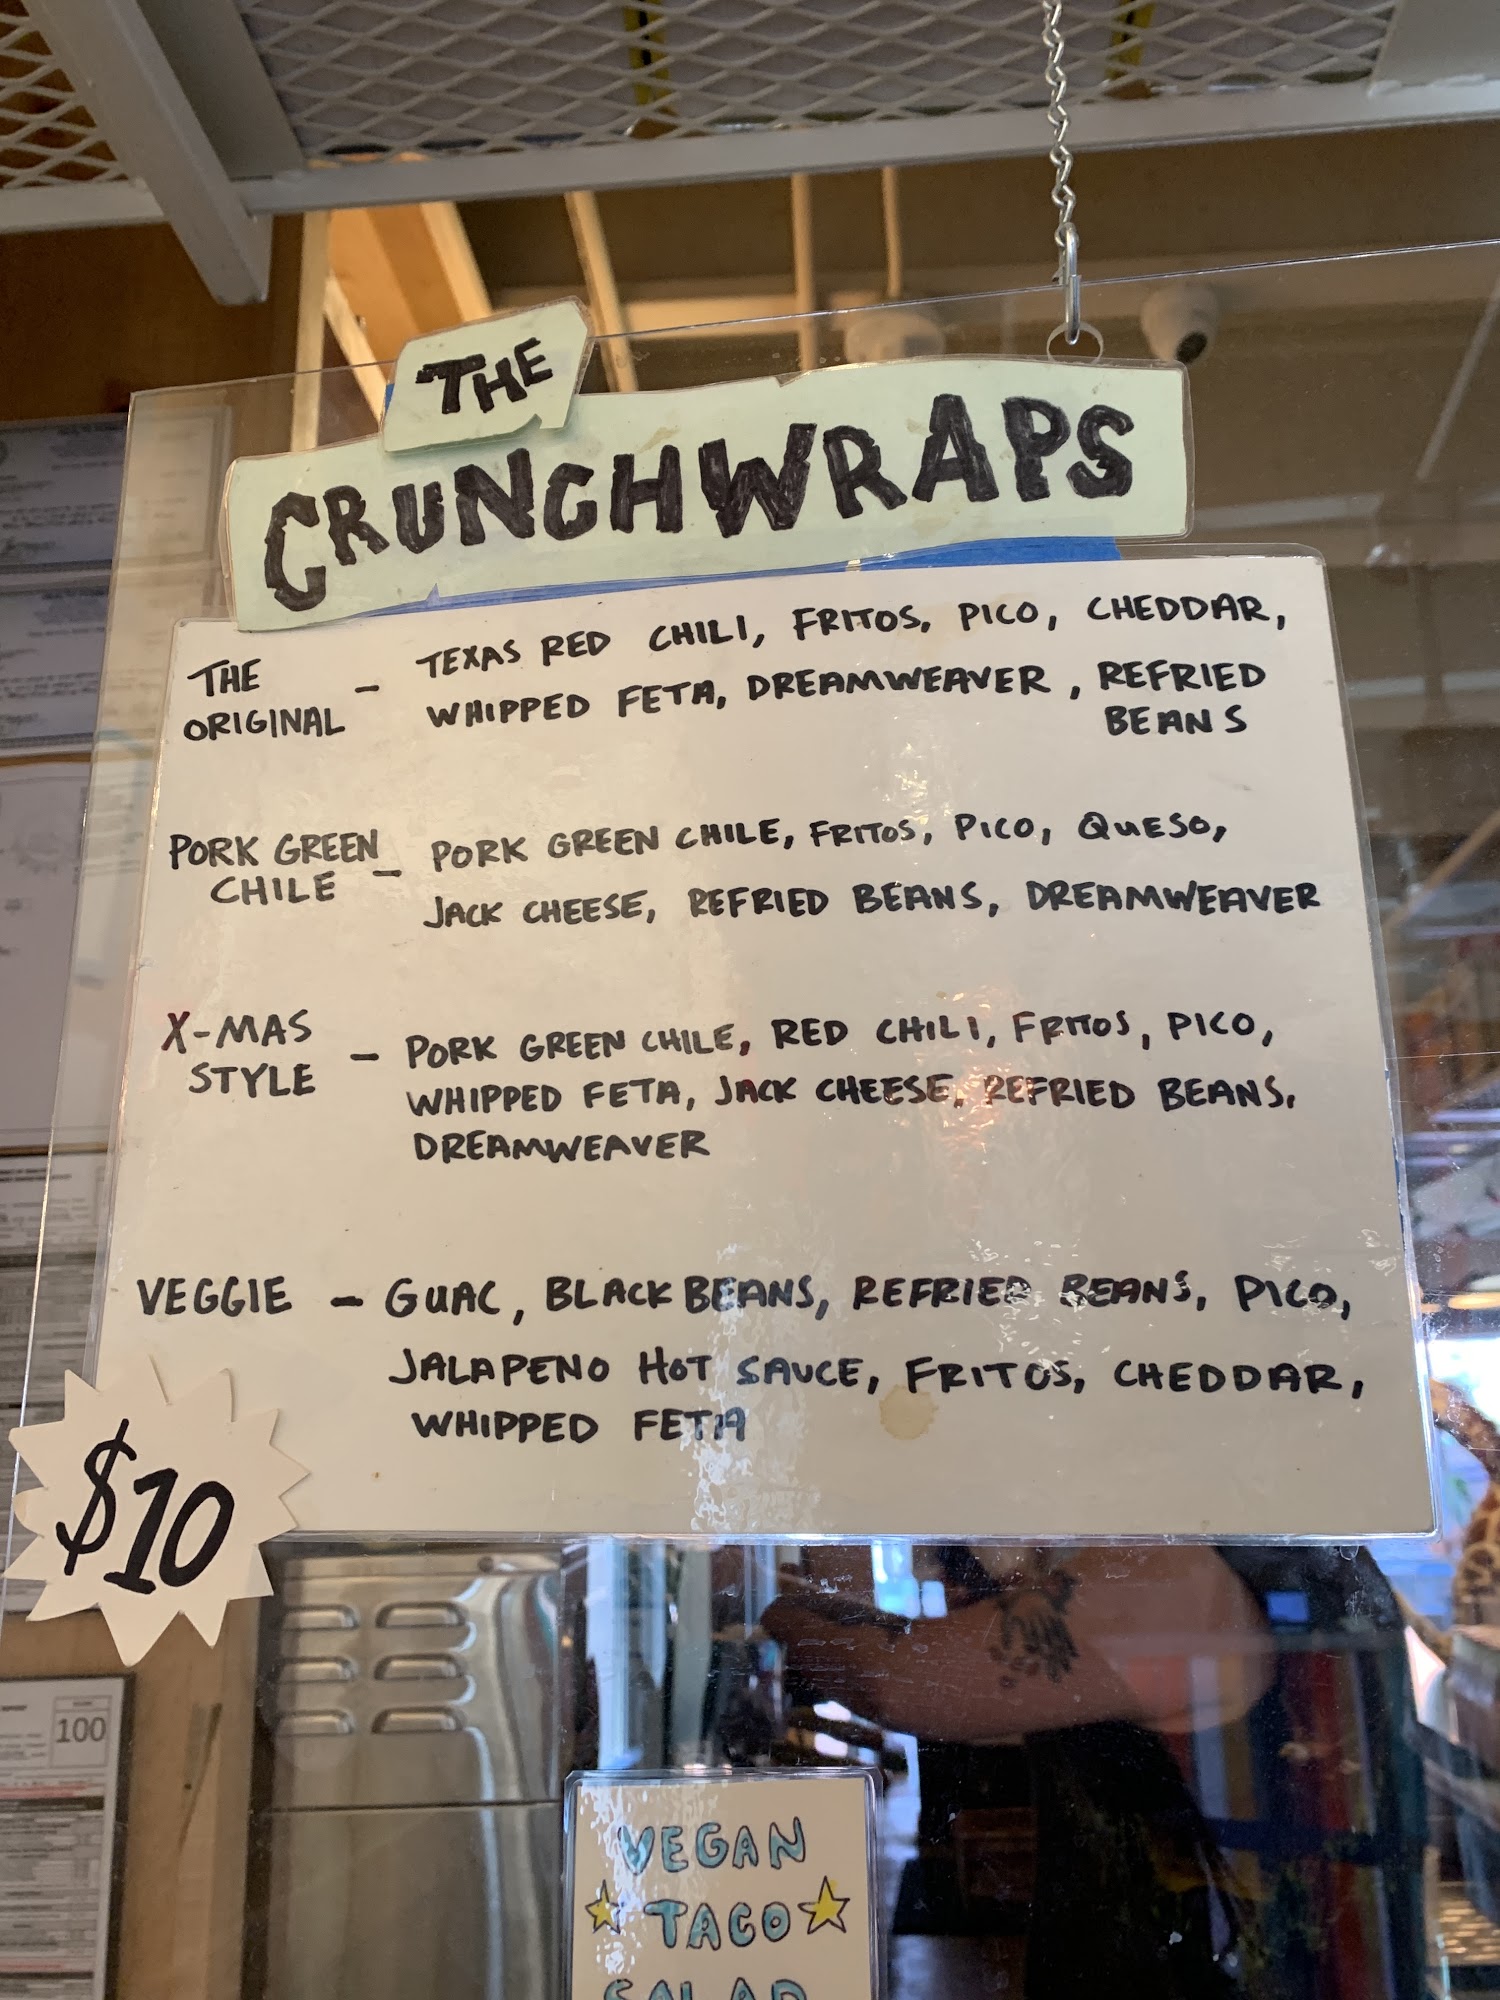 THE
CRUNCHWRAPS
THE ORIGINAL - TEXAS RED CHILI, FRITOS, PICO, CHEDDAR,
WHIPPED FETA, DREAMWEAVER, REFRIED
BEANS
PORK GREEN CHILE - PORK GREEN CHILE, FRITOS, PICO, QUESO,
JACK CHEESE, REFRIED BEANS, DREAMWEAVER
X-MAS STYLE - PORK GREEN CHILE, RED CHILI, FRITOS, PICO,
WHIPPED FETA, JACK CHEESE, REFRIED BEANS,
DREAMWEAVER
VEGGIE - GUAC, BLACK BEANS, REFRIED BEANS, PICO,
JALAPENO HOT SAUCE, FRITOS, CHEDDAR,
WHIPPED FETA
$10
100
VEGAN
TACO
SALAD